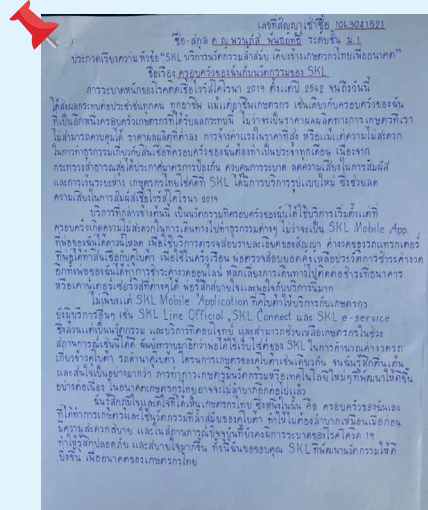 เลขที่สัญญาเช่าซื้อ 1063041521
ชื่อ-สกุล ด.ญ.พรนภัส พันธฤทธิ์ ระดับชั้น ม.1
ประกวดเรียงความ หัวข้อ "SKL บริการนวัตกรรมล้ำสมัย เคียงข้างเกษตรกรไทยเพื่ออนาคต"
ชื่อเรื่อง ครอบครัวของฉันกับนวัตกรรมของ SKL
การระบาดหนักของโรคติดเชื้อไวรัสโคโรนา 2019 ตั้งแต่ปี 2562 จนถึงวันนี้
ได้ส่งผลกระทบต่อประชาชนทุกคน ทุกอาชีพ แม้แต่อาชีพเกษตรกร เช่นเดียวกับครอบครัวของฉัน
ที่เป็นอีกหนึ่งครอบครัวเกษตรกรที่ได้รับผลกระทบนี้ ไม่ว่าจะเป็นราคาผลผลิตทางการเกษตรที่เรา
ไม่สามารถควบคุมได้ ราคาผลผลิตที่ต่ำลง การจ้างแรงงานราคาที่สูง หรือแม้แต่ความไม่สะดวก
ในการทำธุรกรรมเกี่ยวกับสินเชื่อที่ครอบครัวของฉันต้องทำเป็นประจำทุกเดือน เนื่องจาก
กระทรวงสาธารณสุขได้ประกาศมาตรการป้องกัน ควบคุมการระบาด ลดความเสี่ยงในการสัมผัส
และการเว้นระยะห่าง เกษตรกรไทยโชคดีที่ SKL ได้มีการบริการรูปแบบใหม่ ซึ่งช่วยลด
ความเสี่ยงในการสัมผัสเชื้อไวรัสโคโรนา 2019
บริการที่กล่าวข้างต้นนี้ เป็นนวัตกรรมที่ครอบครัวของฉันได้ใช้บริการเริ่มตั้งแต่ที่
ครอบครัวเกิดความไม่สะดวกในการเดินทางไปทำธุรกรรมต่างๆ ไม่ว่าจะเป็น SKL Mobile App
ที่พ่อของฉันได้ดาวน์โหลด เพื่อใช้บริการตรวจสอบรายละเอียดของสัญญา ค่างวดของรถแทรกเตอร์
ที่พ่อได้ทำสินเชื่อกับคูโบต้า เพื่อใช้ในครัวเรือน พ่อตรวจสอบยอดคงเหลือประวัติการชำระค่างวด
อีกทั้งพ่อของฉันได้ทำการชำระค่างวดออนไลน์ หลีกเลี่ยงการเดินทางไปติดต่อชำระที่ธนาคาร
หรือเคาน์เตอร์เซอร์วิสที่ต่างๆได้ พ่อรู้สึกสบายใจและพอใจกับบริการนี้มาก
ไม่เพียงแต่ SKL Mobile Application ที่คูโบต้าให้บริการกับเกษตรกร
ยังมีบริการอื่นๆ เช่น SKL Line Official, SKL Connect และ SKL e-service
ซึ่งล้วนแต่เป็นนวัตกรรม และบริการที่ตอบโจทย์ และสามารถช่วยเหลือเกษตรกรในช่วง
สถานการณ์เช่นนี้ได้ ฉันยังทราบมาอีกว่าพ่อได้ใช้เว็บไซต์ของ SKL ในการคำนวณค่างวดรถ
เกี่ยวข้าวคูโบต้า รถดำนาคูโบต้า โดรนการเกษตรของคูโบต้าเช่นเดียวกัน จนฉันรู้สึกตื่นเต้น
และสนใจเป็นอย่างมากว่า การทำการเกษตรมีนวัตกรรมหรือเทคโนโลยีใหม่ๆที่พัฒนาให้ดีขึ้น
อย่างต่อเนื่อง ในอนาคตเกษตรกรไทยอาจจะไม่ลำบากอีกต่อไปแล้ว
ฉันรู้สึกภูมิใจและดีใจที่ได้เห็นเกษตรกรไทย ซึ่งหนึ่งในนั้น คือ ครอบครัวของฉันเอง
ที่ได้ทำการเกษตรและใช้นวัตกรรมที่ล้ำสมัยของคูโบต้า ทำให้ไม่ต้องลำบากเหมือนเมื่อก่อน
มีความสะดวกสบาย และในสถานการณ์ปัจจุบันที่ยังคงมีการระบาดของโรคโควิด 19
ทำให้รู้สึกปลอดภัย และสบายใจมากขึ้น ทั้งนี้ฉันขอขอบคุณ SKL ที่พัฒนานวัตกรรมให้ดี
ยิ่งขึ้น เพื่ออนาคตของเกษตรกรไทย